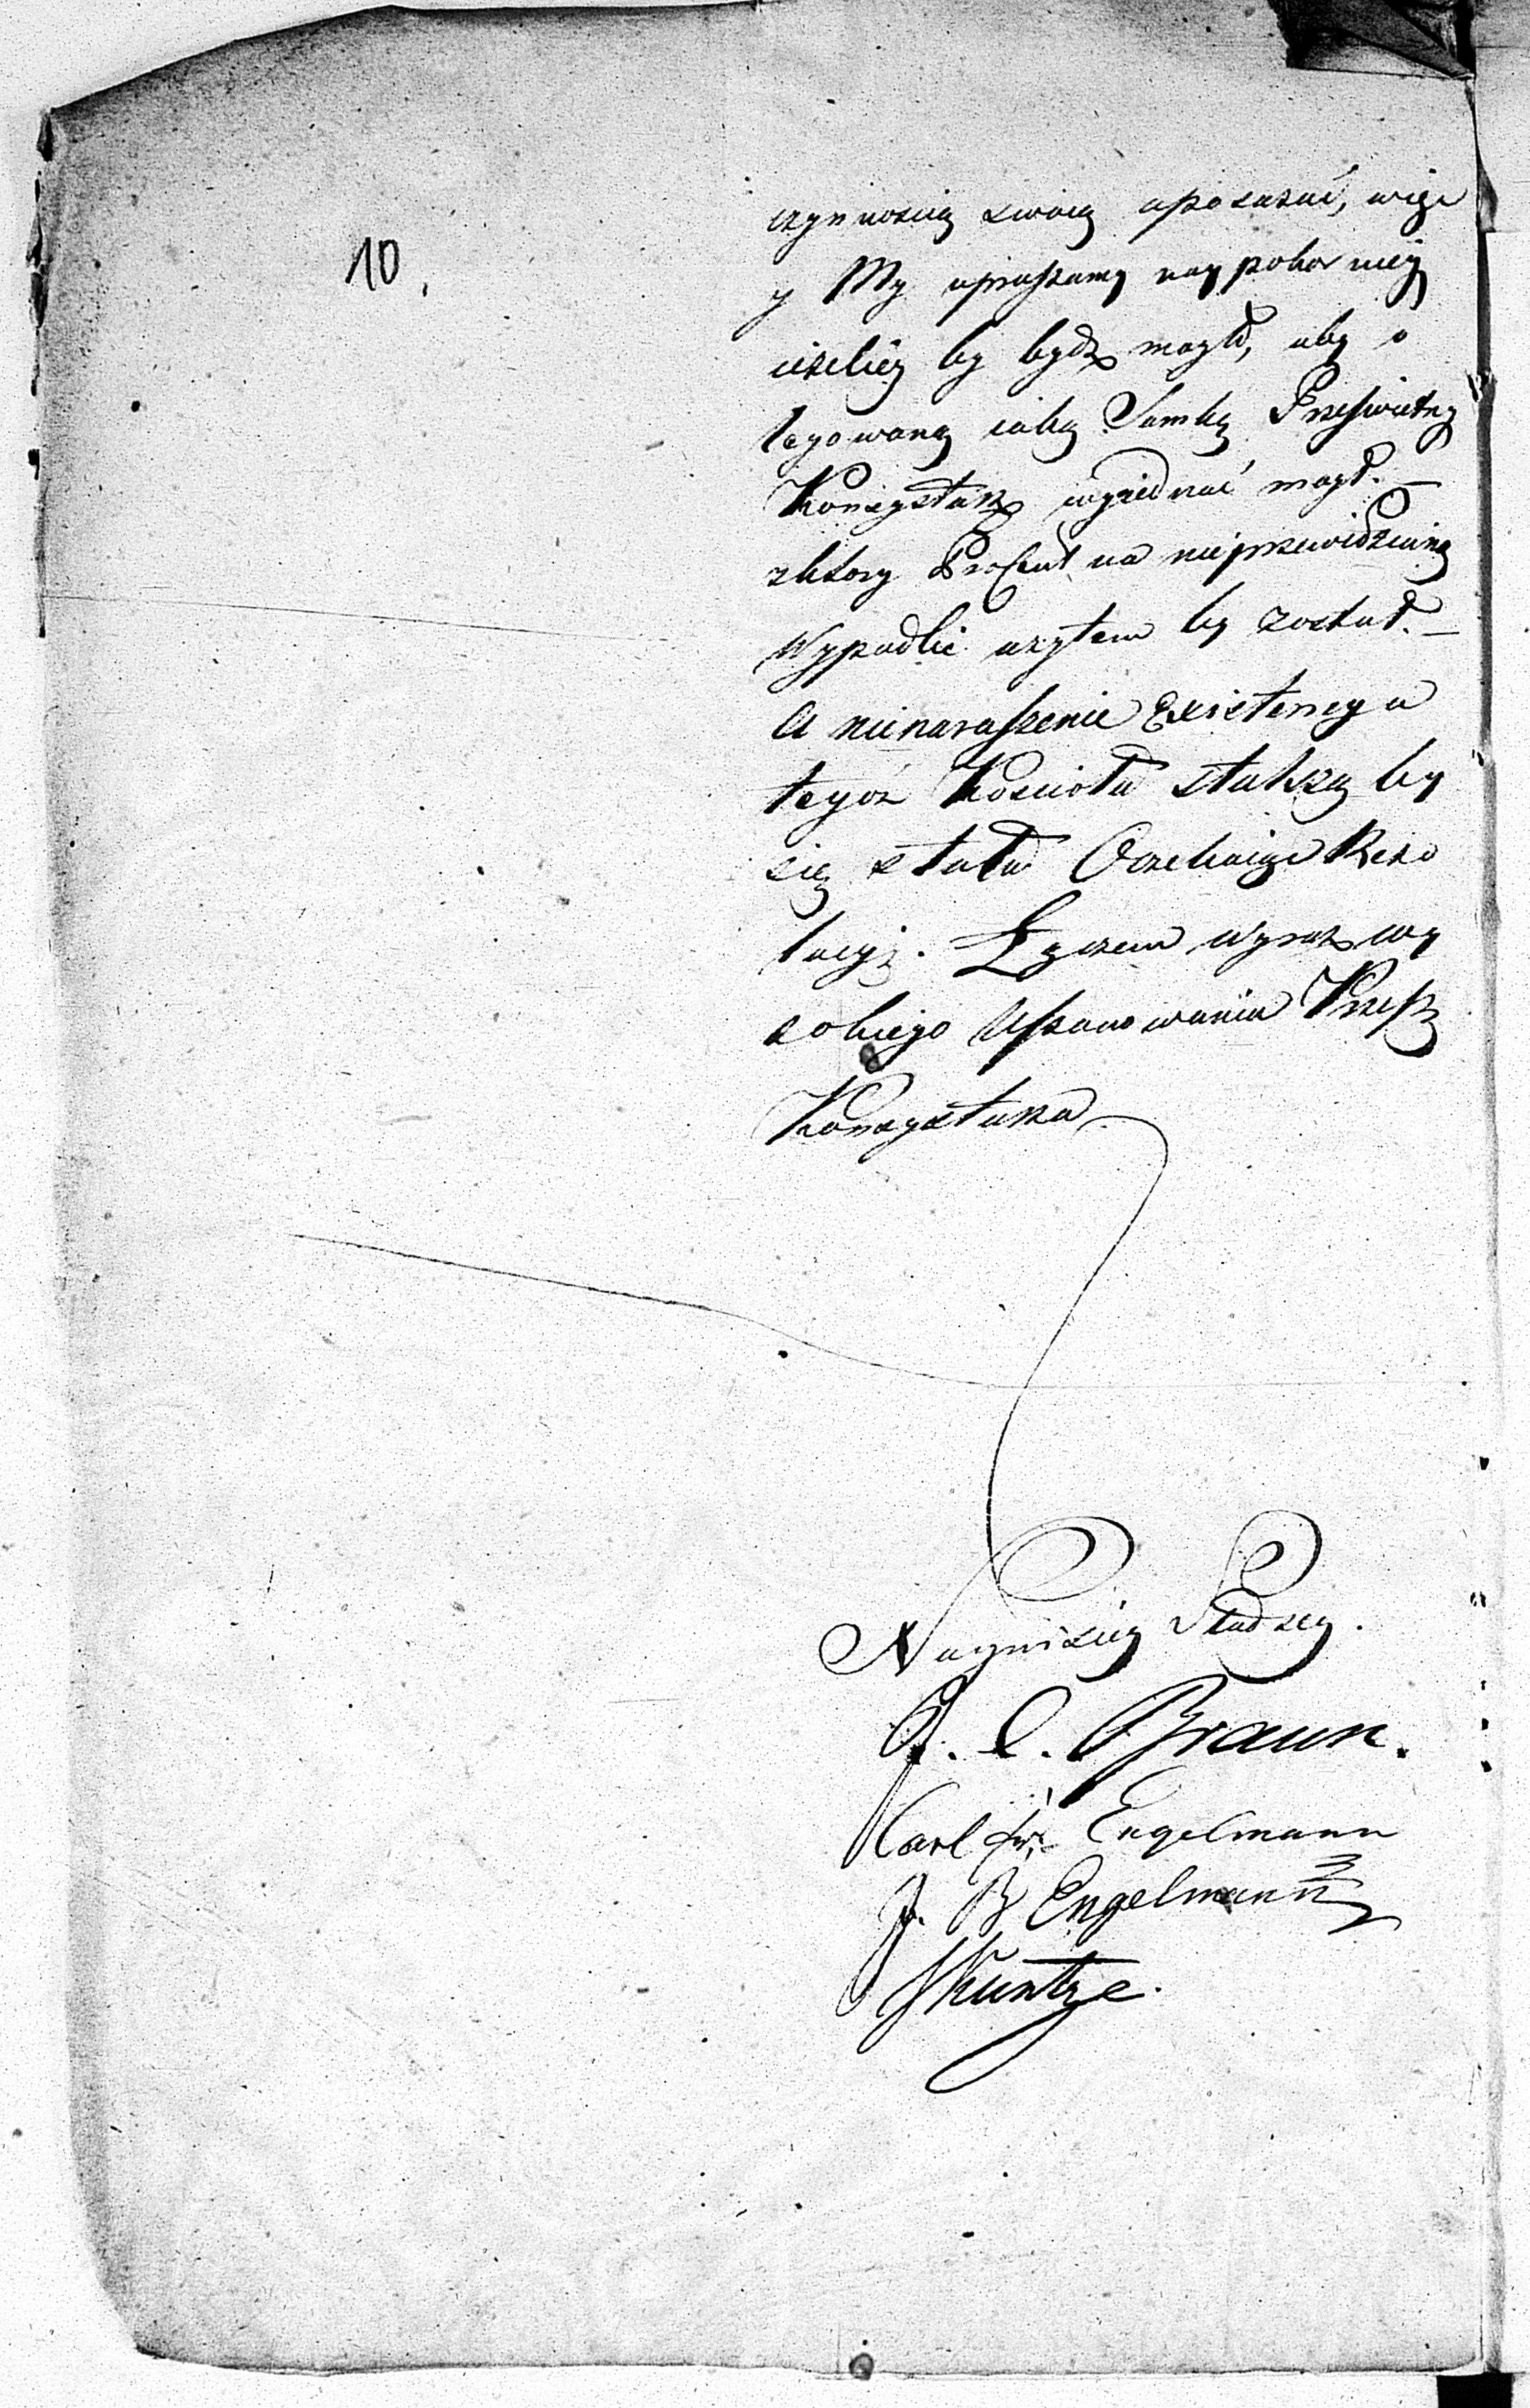 10.
czynnoscią swoią uposazać, więc
y My upraszamy naypokorniey
ieżeliy by bydz mogło, aby o
legowaną całą Sumkę Prześwietny
Konsystorz wyiednać mogł. —
z ktory Procent na nieprzewidziane
Wypadki uzytem by został. —
A nienaruszenie Existencya
tegoż Kościoła stalszą by
się stała Oczekuiąc Rezo
lucyi. Łączem wyraz wy
sokiego Uszanowania Przesz
Konsystorza
Nayniższy Słudzy.
J. C. Braun.
Carl fr: Engelmann
J. B Engelmann
JKuntze.